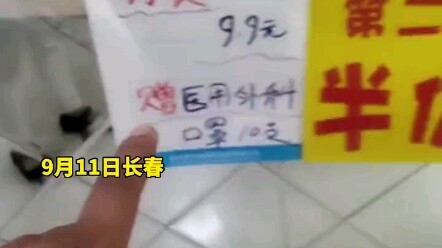 9.9元
赠医用外科
口罩10支
第二
半价
9月11日长春